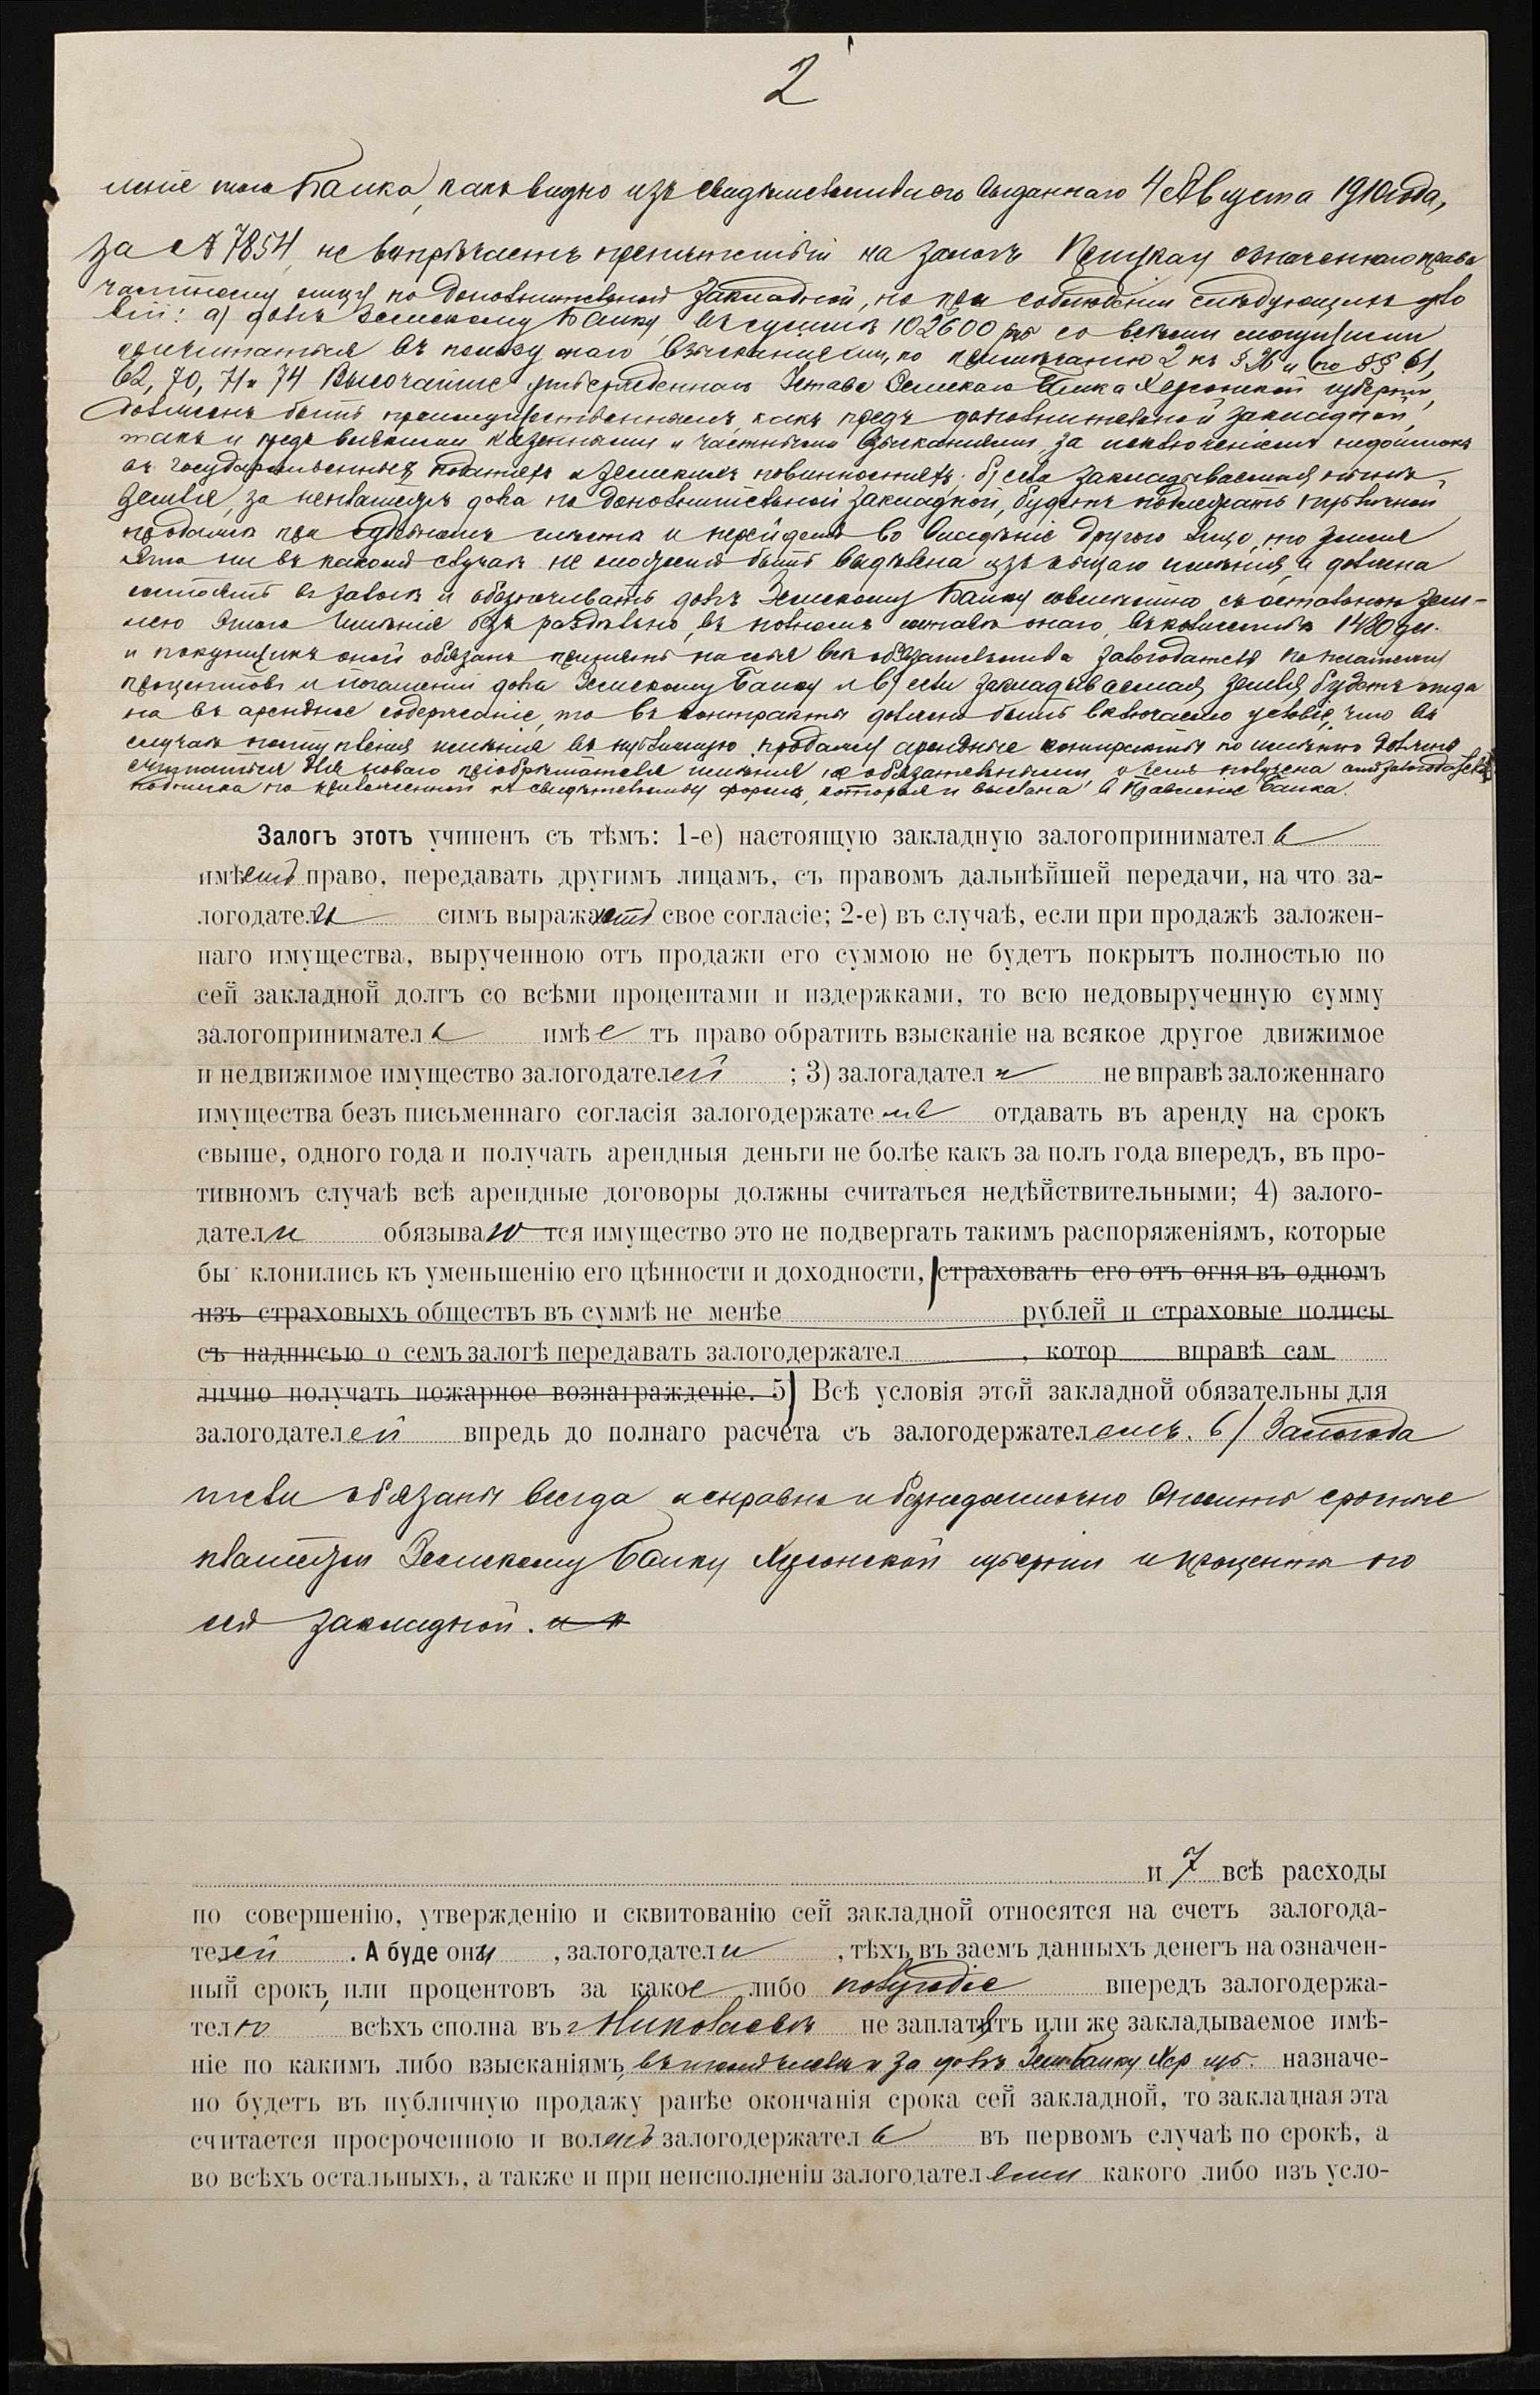 2
леніе того Банка, какъ видно изъ свидѣтельства его выданнаго 4 Августа 1910 года,
за № 7854, не встрѣчаетъ препятствій на залогъ означеннаго права
частному лицу по дополнительной закладной, но при соблюденіи слѣдующихъ усло
вій: а) долгъ Земскому Банку, въ суммѣ 102600 руб со всѣми могущими
причитаться въ пользу онаго взысканіями, по примѣчанію 2 къ § 36 и по §§ 61,
62, 70, 71 и 74 Высочайше утвержденнаго Устава Земскаго Банка Херсонской губерніи,
долженъ быть преимущественнымъ, какъ предъ дополнительной закладной,
такъ и предъ всякими казенными и частными взысканіями, за исключеніемъ недоимокъ
въ государственныхъ податяхъ и земскихъ повинностяхъ; б) если закладываемая нынѣ
земля, за неплатежъ долга по дополнительной закладной, будетъ подлежать публичной
продажѣ при судебномъ мѣстѣ и перейдетъ во владѣніе другого лица, то земля
эта ни въ какомъ случаѣ не можетъ быть выдѣлена изъ общаго имѣнія, и должна
состоять въ залогѣ и обезпечивать долгъ Земскому Банку совмѣстно съ остальною зем-
лею этого имѣнія безъ раздѣльно, въ полномъ составѣ онаго, въ количествѣ 1480 дес.
и покупщикъ оной обязанъ принять на себя всѣ обязательства залогодателя по платежу
процентовъ и погашенія долга Земскому Банку и в) если закладываемая земля будетъ отда
на въ арендное содержаніе, то въ контрактѣ должно быть включаемо условіе, что въ
случаѣ поступленія имѣнія въ публичную продажу арендные контракты по имѣнію должны
считаться для новаго пріобрѣтателя имѣнія не обязательными, о чемъ получена отъ залогодателя
подписка по приложенной къ свидѣтельству формѣ, которая и выслана въ Правленіе Банка.
Залогъ этотъ учиненъ съ тѣмъ: 1-е) настоящую закладную залогопринимател ь
имѣетъ право, передавать другимъ лицамъ, съ правомъ дальнѣйшей передачи, на что за-
логодатели симъ выражаютъ свое согласіе; 2-е) въ случаѣ, если при продажѣ заложен-
наго имущества, вырученною отъ продажи его суммою не будетъ покрытъ полностью по
сей закладной долгъ со всѣми процентами и издержками, то всю недовырученную сумму
залогопринимател ь имѣ е тъ право обратить взысканіе на всякое другое движимое
и недвижимое имущество залогодателей ; 3) залогадател и не вправѣ заложеннаго
имущества безъ письменнаго согласія залогодержате ля отдавать въ аренду на срокъ
свыше, одного года и получать арендныя деньги не болѣе какъ за полъ года впередъ, въ про-
тивномъ случаѣ всѣ арендные договоры должны считаться недѣйствительными; 4) залого-
датели обязываю тся имущество это не подвергать такимъ распоряженіямъ, которые
бы клонились къ уменьшенію его цѣнности и доходности, страховать его отъ огня въ одномъ
изъ страховыхъ обществъ въ суммѣ не менѣе рублей и страховые полисы
съ надписью о семъ залогѣ передавать залогодержател , котор вправѣ сам
лично получать пожарное вознагражденіе. 5) Всѣ условія этой закладной обязательны для
залогодателей впредь до полнаго расчета съ залогодержателемъ. 6) Залогода
тели обязаны всегда исправно и бездоимочно вносить срочные
платежи Земскому Банку Херсонской губерніи и проценты по
сей закладной. и п
и 7 всѣ расходы
по совершенію, утвержденію и сквитованію сей закладной относятся на счетъ залогода-
телей . А буде они , залогодатели , тѣхъ въ заемъ данныхъ денегъ на означен-
ный срокъ, или процентовъ за какое либо полугодіе впередъ залогодержа-
телю всѣхъ сполна въ г. Николаевѣ не заплатятъ или же закладываемое имѣ-
ніе по какимъ либо взысканіямъ, въ томъ числѣ и за долгъ Зем. Банку Хер губ. назначе-
но будетъ въ публичную продажу ранѣе окончанія срока сей закладной, то закладная эта
считается просроченною и воленъ залогодержател ь въ первомъ случаѣ по срокѣ, а
во всѣхъ остальныхъ, а также и при неисполненіи залогодателями какого либо изъ усло-